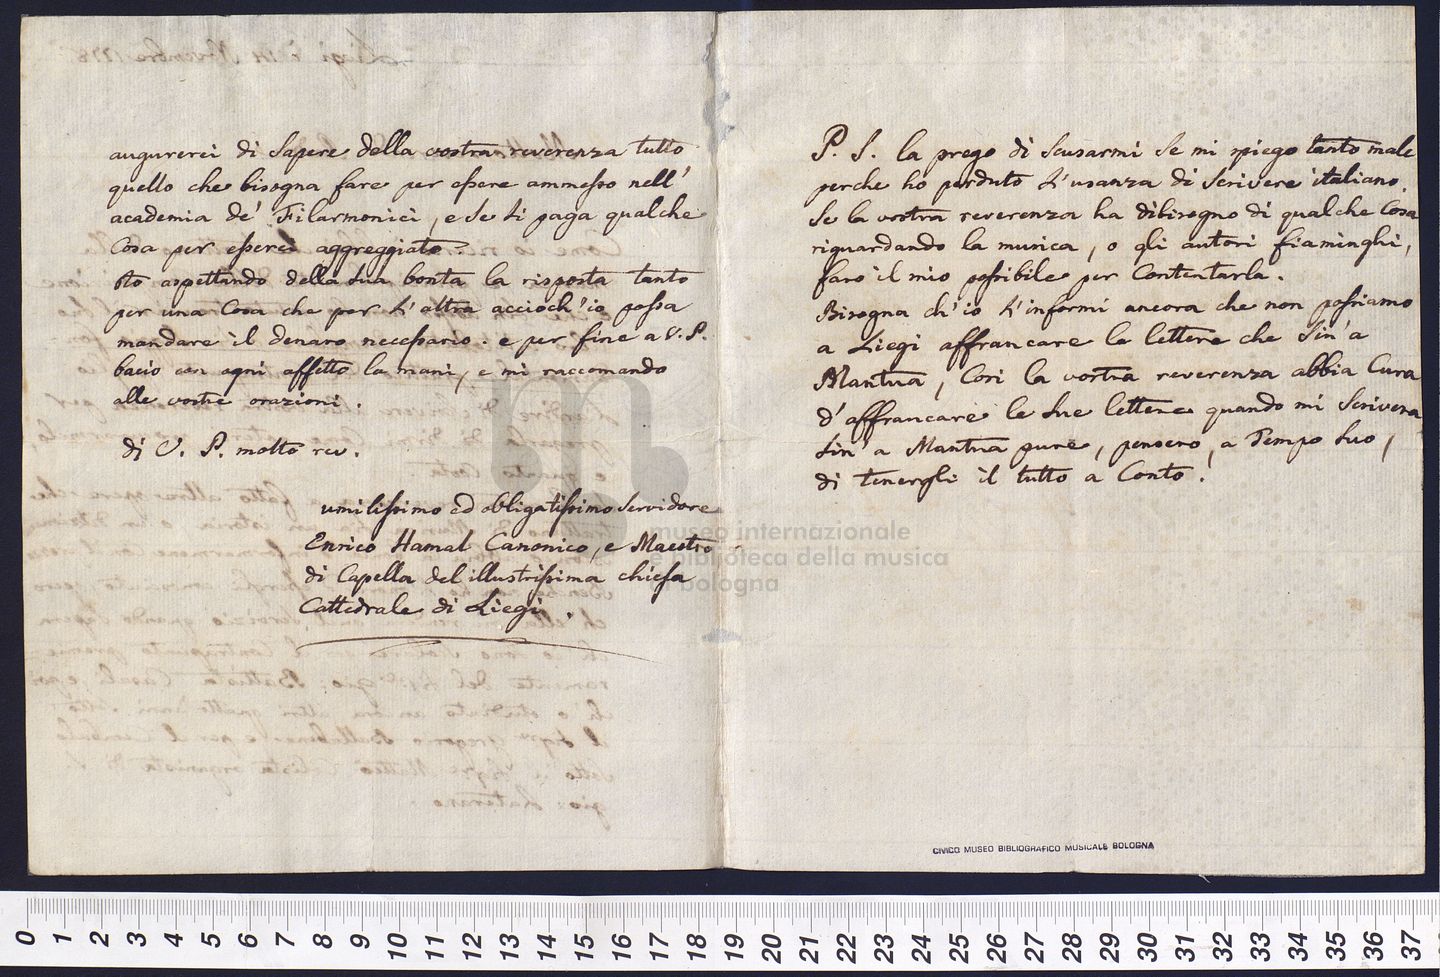 augurerei di Sapere della vostra reverenza tutto
quello che bisogna fare per essere ammesso nell'
academia de' Filarmonici, e se si paga qualche
Cosa per esserci aggreggiato.
sto aspettando della sua bonta la risposta tanto
per una Cosa che per l'altra accioch'io possa
mandare il denaro necessario. e per fine a V. P.
bacio con ogni affetto la mani, e mi raccomando
alle vostre orazioni.
di V. P. molto rev.
umilissimo ed obligatissimo Servidore
Enrico Hamal Canonico, e Maestro
di Capella del illustrissima chiesa
Cattedrale di Liegi.
P. S. la prego di Scusarmi Se mi spiego tanto male
perche ho perduto l'usanza di Scrivere italiano.
Se la vostra reverenza ha dibisegno di qualche Cosa
riguardando la musica, o gli autori fiaminghi,
farò il mio possibile per Contentarla.
Bisogna ch'io l'informi ancora che non possiamo
a Liegi affrancare le lettere che Sin'a
Mantua, Cosi la vostra reverenza abbia Cura
d'affrancare le sue lettere quando mi Scrivera
sin'a Mantua pure, pensero, a Tempo suo,
di tenergli il tutto a Conto.
museo internazionale
e biblioteca della musica
di bologna
CIVICO MUSEO BIBLIOGRAFICO MUSICALE BOLOGNA
0 1 2 3 4 5 6 7 8 9 10 11 12 13 14 15 16 17 18 19 20 21 22 23 24 25 26 27 28 29 30 31 32 33 34 35 36 37